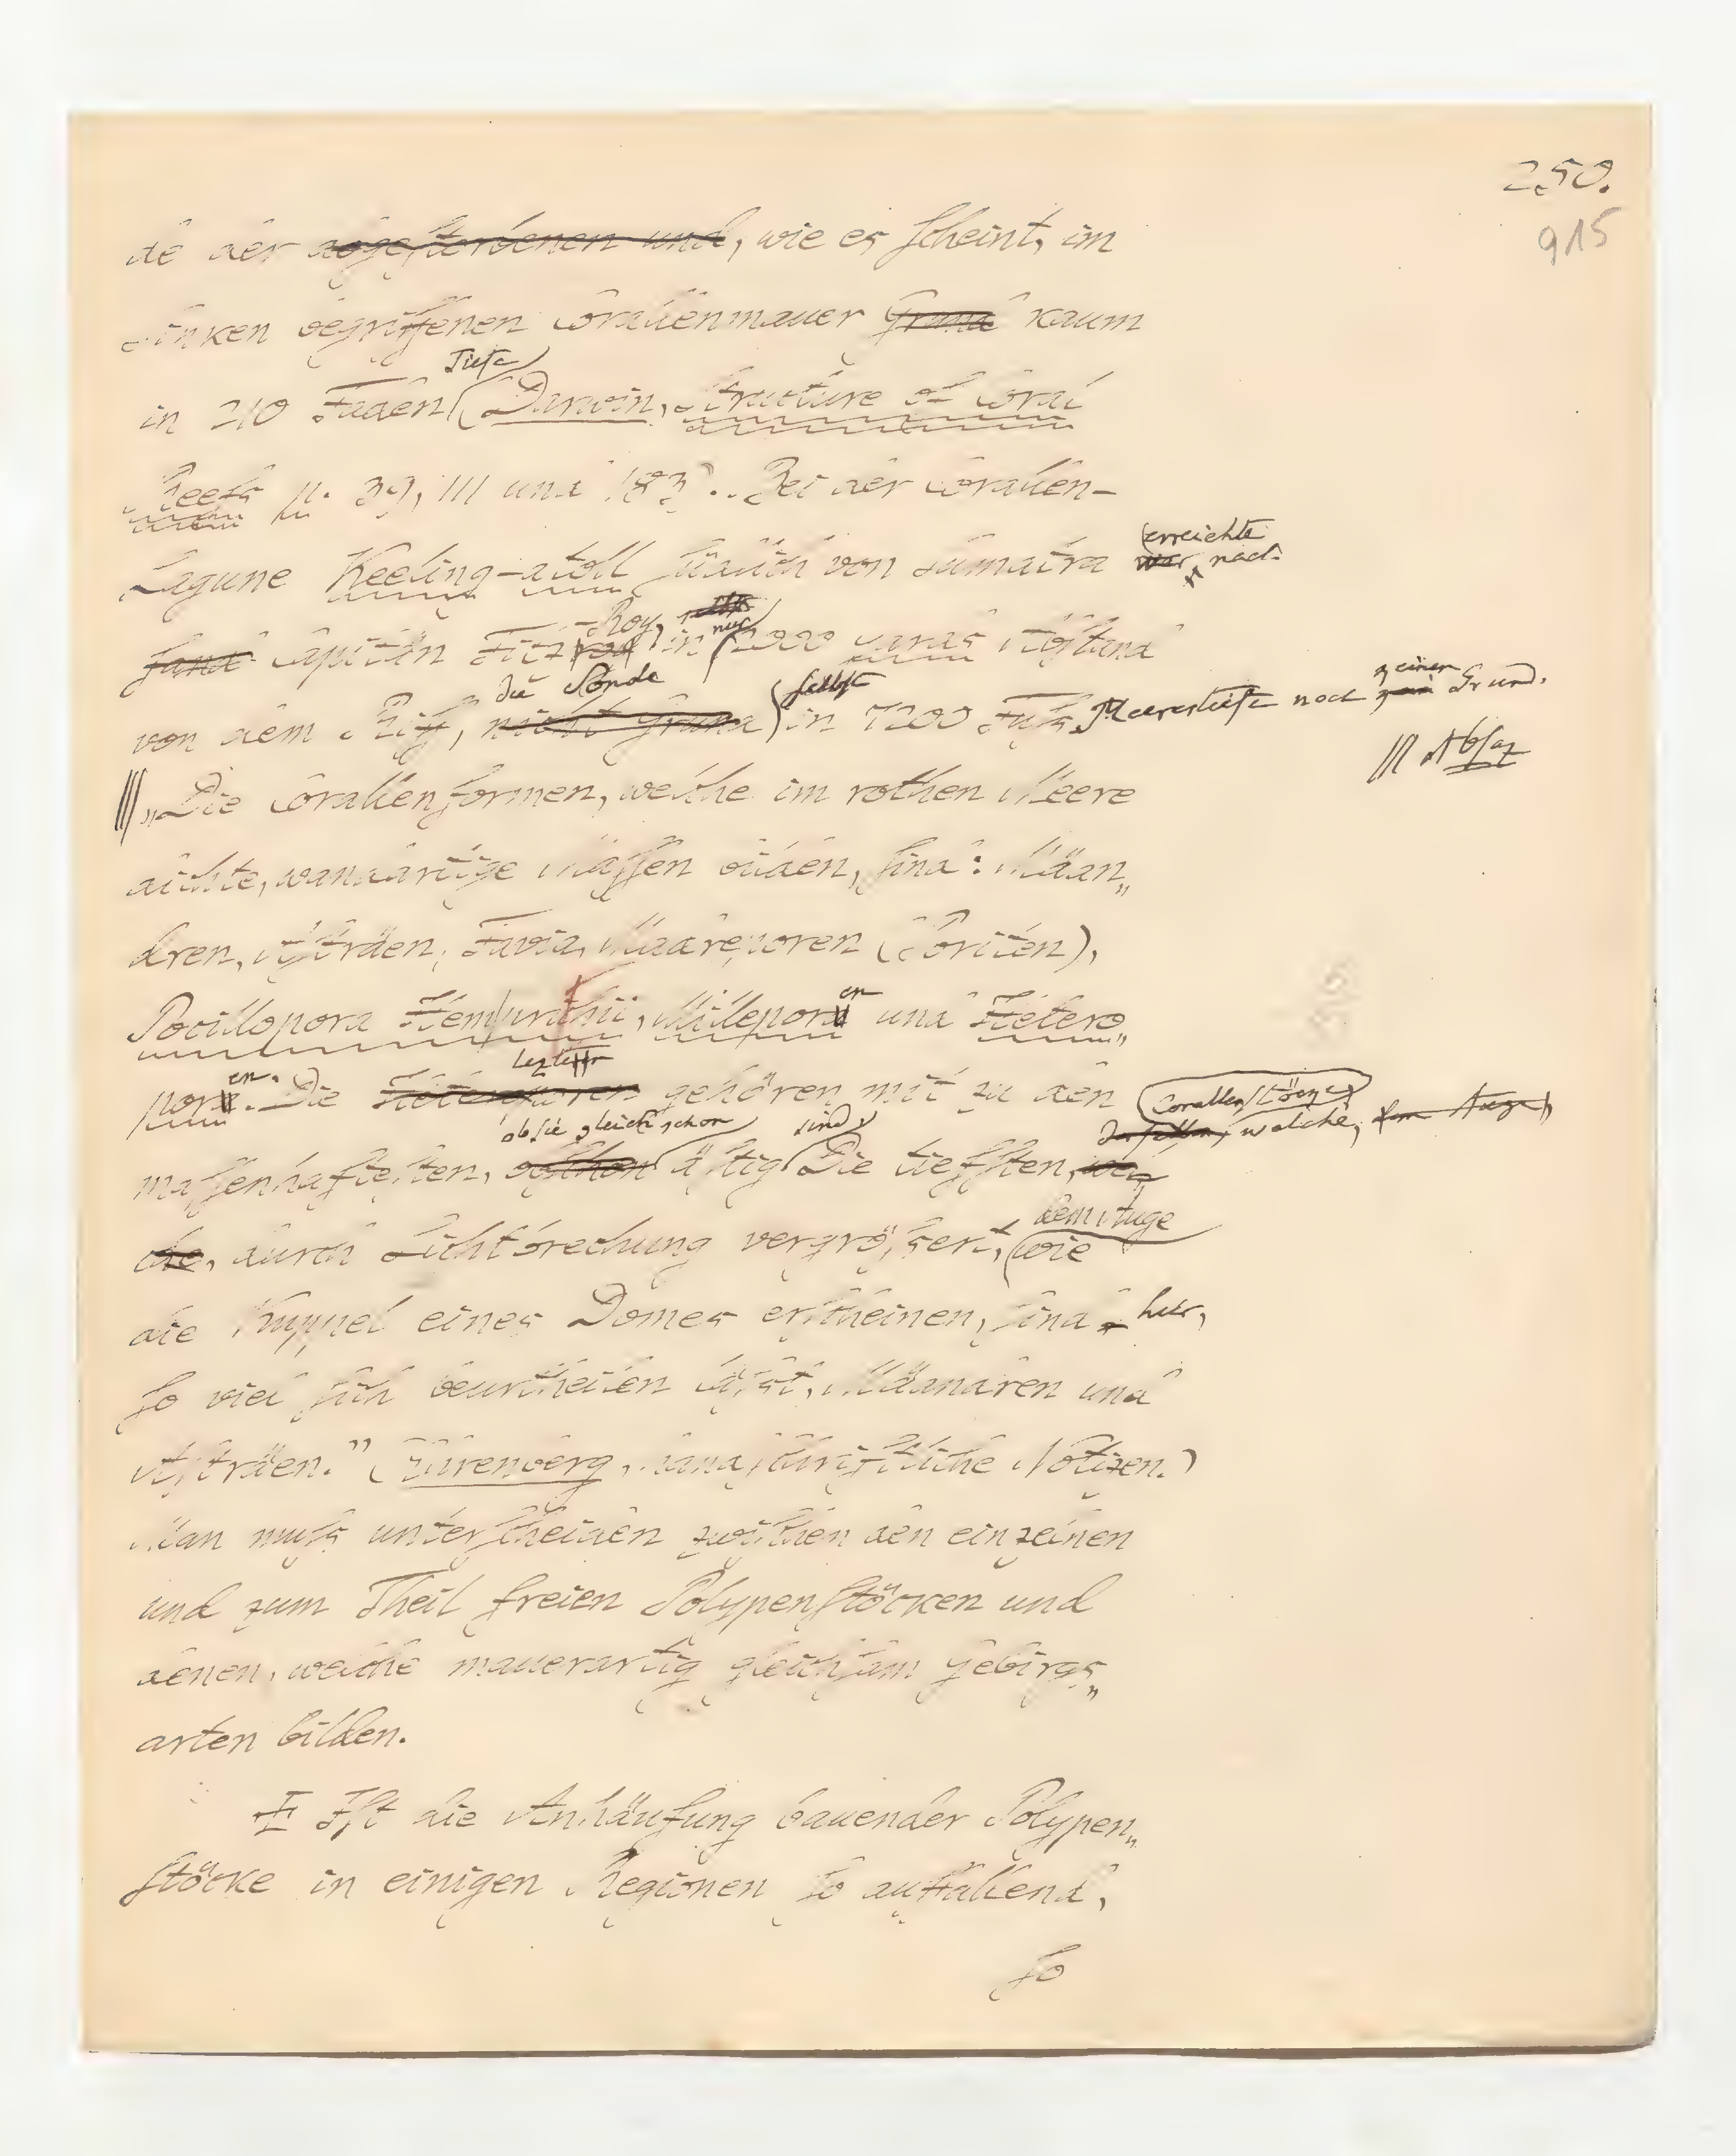 250.
915
de der abgestorbenen und, wie es scheint, im
Sinken begriffenen Corallenmauer Grund kaum
Tiefe
in 210 Faden (Darwin, Structure of Coral
Reefs p. 39, 111 und 183). Bei der Corallen-
erreichte
Lagune Keeling-atoll südlich von Sumatra war, nach
Roy, nur
fand Capitän Fitz in 2000 yards Abstand
die Sonde selbst keinen
von dem Riff, nicht Grund in 7200 Fuß Meerestiefe noch Grund.
Absaz
„Die Corallenformen, welche im rothen Meere
dichte, wandartige Massen bilden, sind: Mäan„
dren, Asträen, Favia, Madreporen (Poriten),
en
Pocillopora Hemprichii, Millepora und Hetero„
en. leztere
pora. Die Heteroporen gehören mit zu den Corallenstöcke
ob sie gleich schon sind derselben, welche, dem Auge,
massenhaftesten, obschon ästig. Die tiefsten, wel„
dem Auge
che, durch Lichtbrechung vergrößert, wie
die Kuppel eines Domes erscheinen, sind hier,
so viel sich beurtheilen läßt, Mäandren und
Asträen.“ (Ehrenberg, handschriftliche Notizen.)
Man muß unterscheiden zwischen den einzelnen
und zum Theil freien Polypenstöcken und
denen, welche mauerartig gleichsam Gebirgs„
arten bilden.
Ist die Anhäufung bauender Polypen„
stöcke in einigen Regionen so auffallend,
so